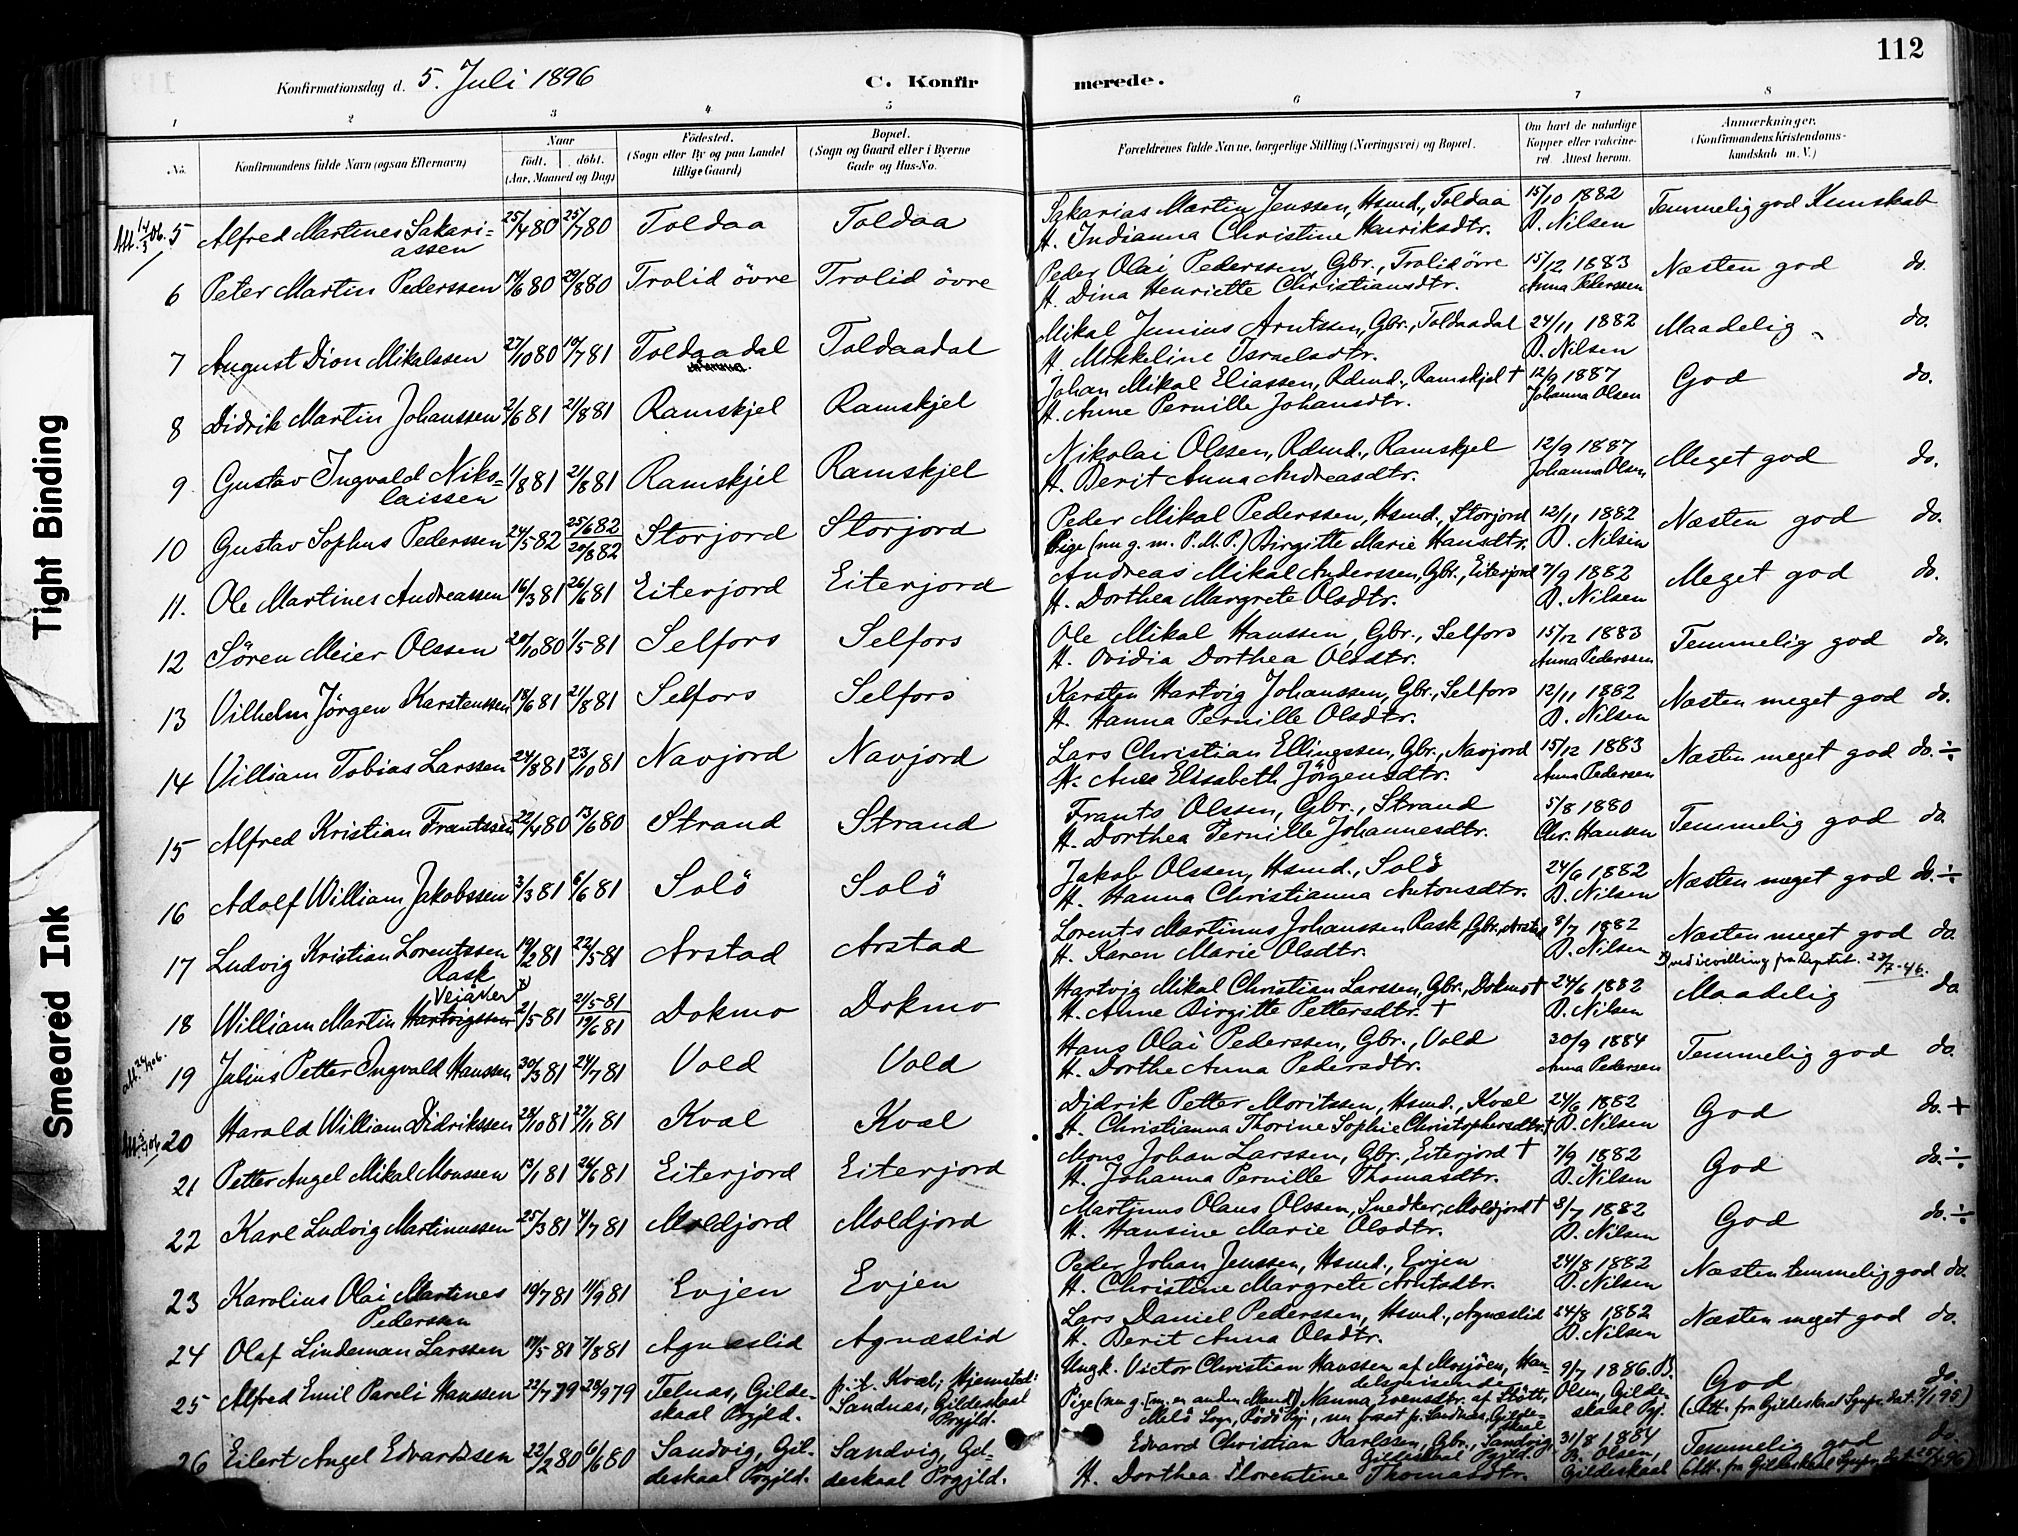 112
Konfirmationsdag d. 5. Juli 1896
C. Konfirmerede.
1 2 3 4 5 6 7 8
No.
Konfirmandens fulde Navn (ogsaa Efternavn)
Naar
født. døbt.
(Aar, Maaned og Dag)
Fødested.
(Sogn eller By og paa Landet
tillige Gaard)
Bopæl.
(Sogn og Gaard eller i Byerne
Gade og Hus-No.
Forældrenes fulde Navne, borgerlige Stilling (Næringsvei) og Bopæl.
Om havt de naturlige
Kopper eller vakcine-
ret. Attest herom.
Anmærkninger.
(Konfirmandens Kristendoms-
kundskab m. V.)
5 Alfred Martines Sakari-
assen 25/4 80 25/7 80 Toldaa Toldaa Sakarias Martin Jenssen, Hsmd., Toldaa 15/10 1882 Temmelig god Kunskab
H. Indianna Christine Henriksdtr. D. Nilsen
6 Peter Martin Pederssen 29/8 80 Trolid övre Trolid övre Peder Olai Pederssen, Gbr., Trolid övre 15/12 1883 Næsten god do.
H. Dina Henriette Christiansdtr. Anna Pederssen
7 August Dion Mikalssen 27/10 80 10/7 81 Toldaadal Toldaadal Mikal Junius Arntssen, Gbr., Toldaadal 24/11 1882 Maadelig do.
H. Israelsdtr. D. Nilsen
8 Didrik Martin Johanssen 2/6 81 21/8 81 Ramskjel Ramskjel Johan Mikal Eliassen, Rdmd., Ramskjel † 12/9 1887 God do.
H. Anne Pernille Johansdtr. Johanna Olsen
9 Gustav Ingvald Niko-
laissen 1/8 81 21/8 81 Ramskjel Ramskjel Nikolai Olssen, Rdmd., Ramskjel 12/9 1887 Meget god do.
H. Berit Anna Andreasdtr. Johanna Olsen
10 Gustav Sophus Pederssen 24/5 82 25/6 82 20/8 82 Storjord Storjord Peder Mikal Pederssen, Hsmd., Storjord 12/11 1882 Næsten god do.
Pige (nu g. m. P. M. P.) Birgitte Marie Hansdtr. D. Nilsen
11. Ole Martines Andreassen 16/3 81 26/6 81 Eiterjord Eiterjord Andreas Mikal Anderssen, Gbr., Eiterjord 7/9 1882 Meget god do.
H. Dorthea Margrete Olsdtr. D. Nilsen
12 Sören Meier Olssen 20/10 80 1/5 81 Selfors Selfors Ole Mikal Hanssen, Gbr., Selfors 15/12 1883 Temmelig god do.
H. Ovidia Dorthea Olsdtr. Anna Pederssen
13 Vilhelm Jörgen Karstenssen 18/6 81 21/8 81 Selfors Selfors Karsten Hartvig Johanssen, Gbr., Selfors 12/11 1882 Næsten meget god do.
H. Hanna Pernille Olsdtr. D. Nilsen
14 Villiam Tobias Larssen 24/8 81 23/10 81 Navjord Navjord Lars Christian Ellingssen, Gbr., Navjord 15/12 1883 Næsten meget god do. ÷
H. Anne Elisabeth Jörgensdtr. Anna Pedersen
15 Alfred Kristian Frantssen 22/4 80 13/6 80 Strand Strand Frants Olssen, Gbr., Strand 5/8 1880 Temmelig god do.
H. Dorthea Pernille Johannesdtr. Chr. Hansen
16 Adolf William Jakobssen 3/3 81 6/6 81 Solö Solö Jakob Olssen, Hsmd., Solö 24/6 1882 Næsten meget god do. ÷
H. Hanna Christianna Antonsdtr. D. Nilsen
17 Ludvig Kristian Lorentssen
Rask 19/2 81 22/5 81 Arstad Arstad Lorents Martinus Johanssen Rask, Gbr., Arstad 8/7 1882 Næsten meget god do.
H. Karen Marie Olsdtr. D. Nilsen
Veiåker x 23/7-46.
18 William Martin Hartvigssen 2/5 81 21/5 81 19/6 81 Dokmo Dokmo Hartvig Mikal Christian Larssen, Gbr., Dokmo † 24/6 1882 Maadelig do
H. Anne Birgitte Pettersdtr. † D. Nilsen
19 Julius Petter Ingvald Hanssen 30/3 81 24/7 81 Vold Vold Hans Olai Pederssen, Gbr., Vold 30/9 1884 Temmelig god do.
H. Dorthe Anna Pedersdtr. Anna Pedersen
20 Harald William Didrikssen 81 27/11 81 Kval Kval Didrik Petter Moritssen, Hsmd., Kval 24/6 1882 God do. +
H. Christianna Thorine Sophie Christophersdtr. † D. Nilsen
21 Petter Angel Mikal Monssen 13/1 81 26/6 81 Eiterjord Eiterjord Mons Johan Larssen, Gbr., Eiterjord † 7/9 1882 God do. ÷
H. Johanna Pernille Thomasdtr. D. Nilsen
22 Karl Ludvig Martinussen 25/3 81 4/7 81 Moldjord Moldjord Martinus Olaus Olssen, Snedker, Moldjord † 8/7 1882 God do. ÷
H. Hansine Marie Olsdtr. D. Nilsen
23 Karolius Olai Martines
Pederssen 19/7 81 11/9 81 Evjen Evjen Peder Johan Jenssen, Hsmd., Evjen 24/8 1882 Næsten temmelig god do.
H. Christine Margrete Arntsdtr. D. Nilsen
24 Olaf Lindeman Larssen 17/5 81 7/8 81 Agnæslid Agnæslid Lars Daniel Pederssen, Hsmd., Agnæslid 24/8 1882 Næsten meget god do.
H. Berit Anna Olsdtr. D. Nilsen
25 Alfred Emil Pareli Hanssen 22/7 79 28/9 79 Telnæs, Gilde-
skaal Prgjld. p. t. Kval; Hjemsted:
Sandnæs, Gildeskaal
Prgjld. Ungk. Victor Christian Hanssen af Mosjöen, Han-
delsreisende 9/7 1886. B.
Olsen, Gilde-
skaal Pgj. God do.
Pige (nu g. [m. en anden Mand]) Nanna Evensdtr. af Støtt, (Att. fra Gildeskaal Sgnpr. dat. 95)
Melö Sogn, Rödö Pgj., nu bosat p. Sandnæs, Gilde-
skaal
26 Eilert Angel Edvardssen 22/2 80 6/6 80 Sandvig, Gil-
deskaal Prgjld. Sandvig, Gil-
deskaal Prgjld. Edvard Christian Karlssen, Gbr., Sandvig,
Gildeskaal Pgjld. 31/8 1884
B. Olsen,
Gildeskaal Temmelig god do.
H. Dorthea Florentine Thomasdtr. (Att. fra Gildeskaal Sgnpr. dat. 96)
Tight Binding
Smeared Ink